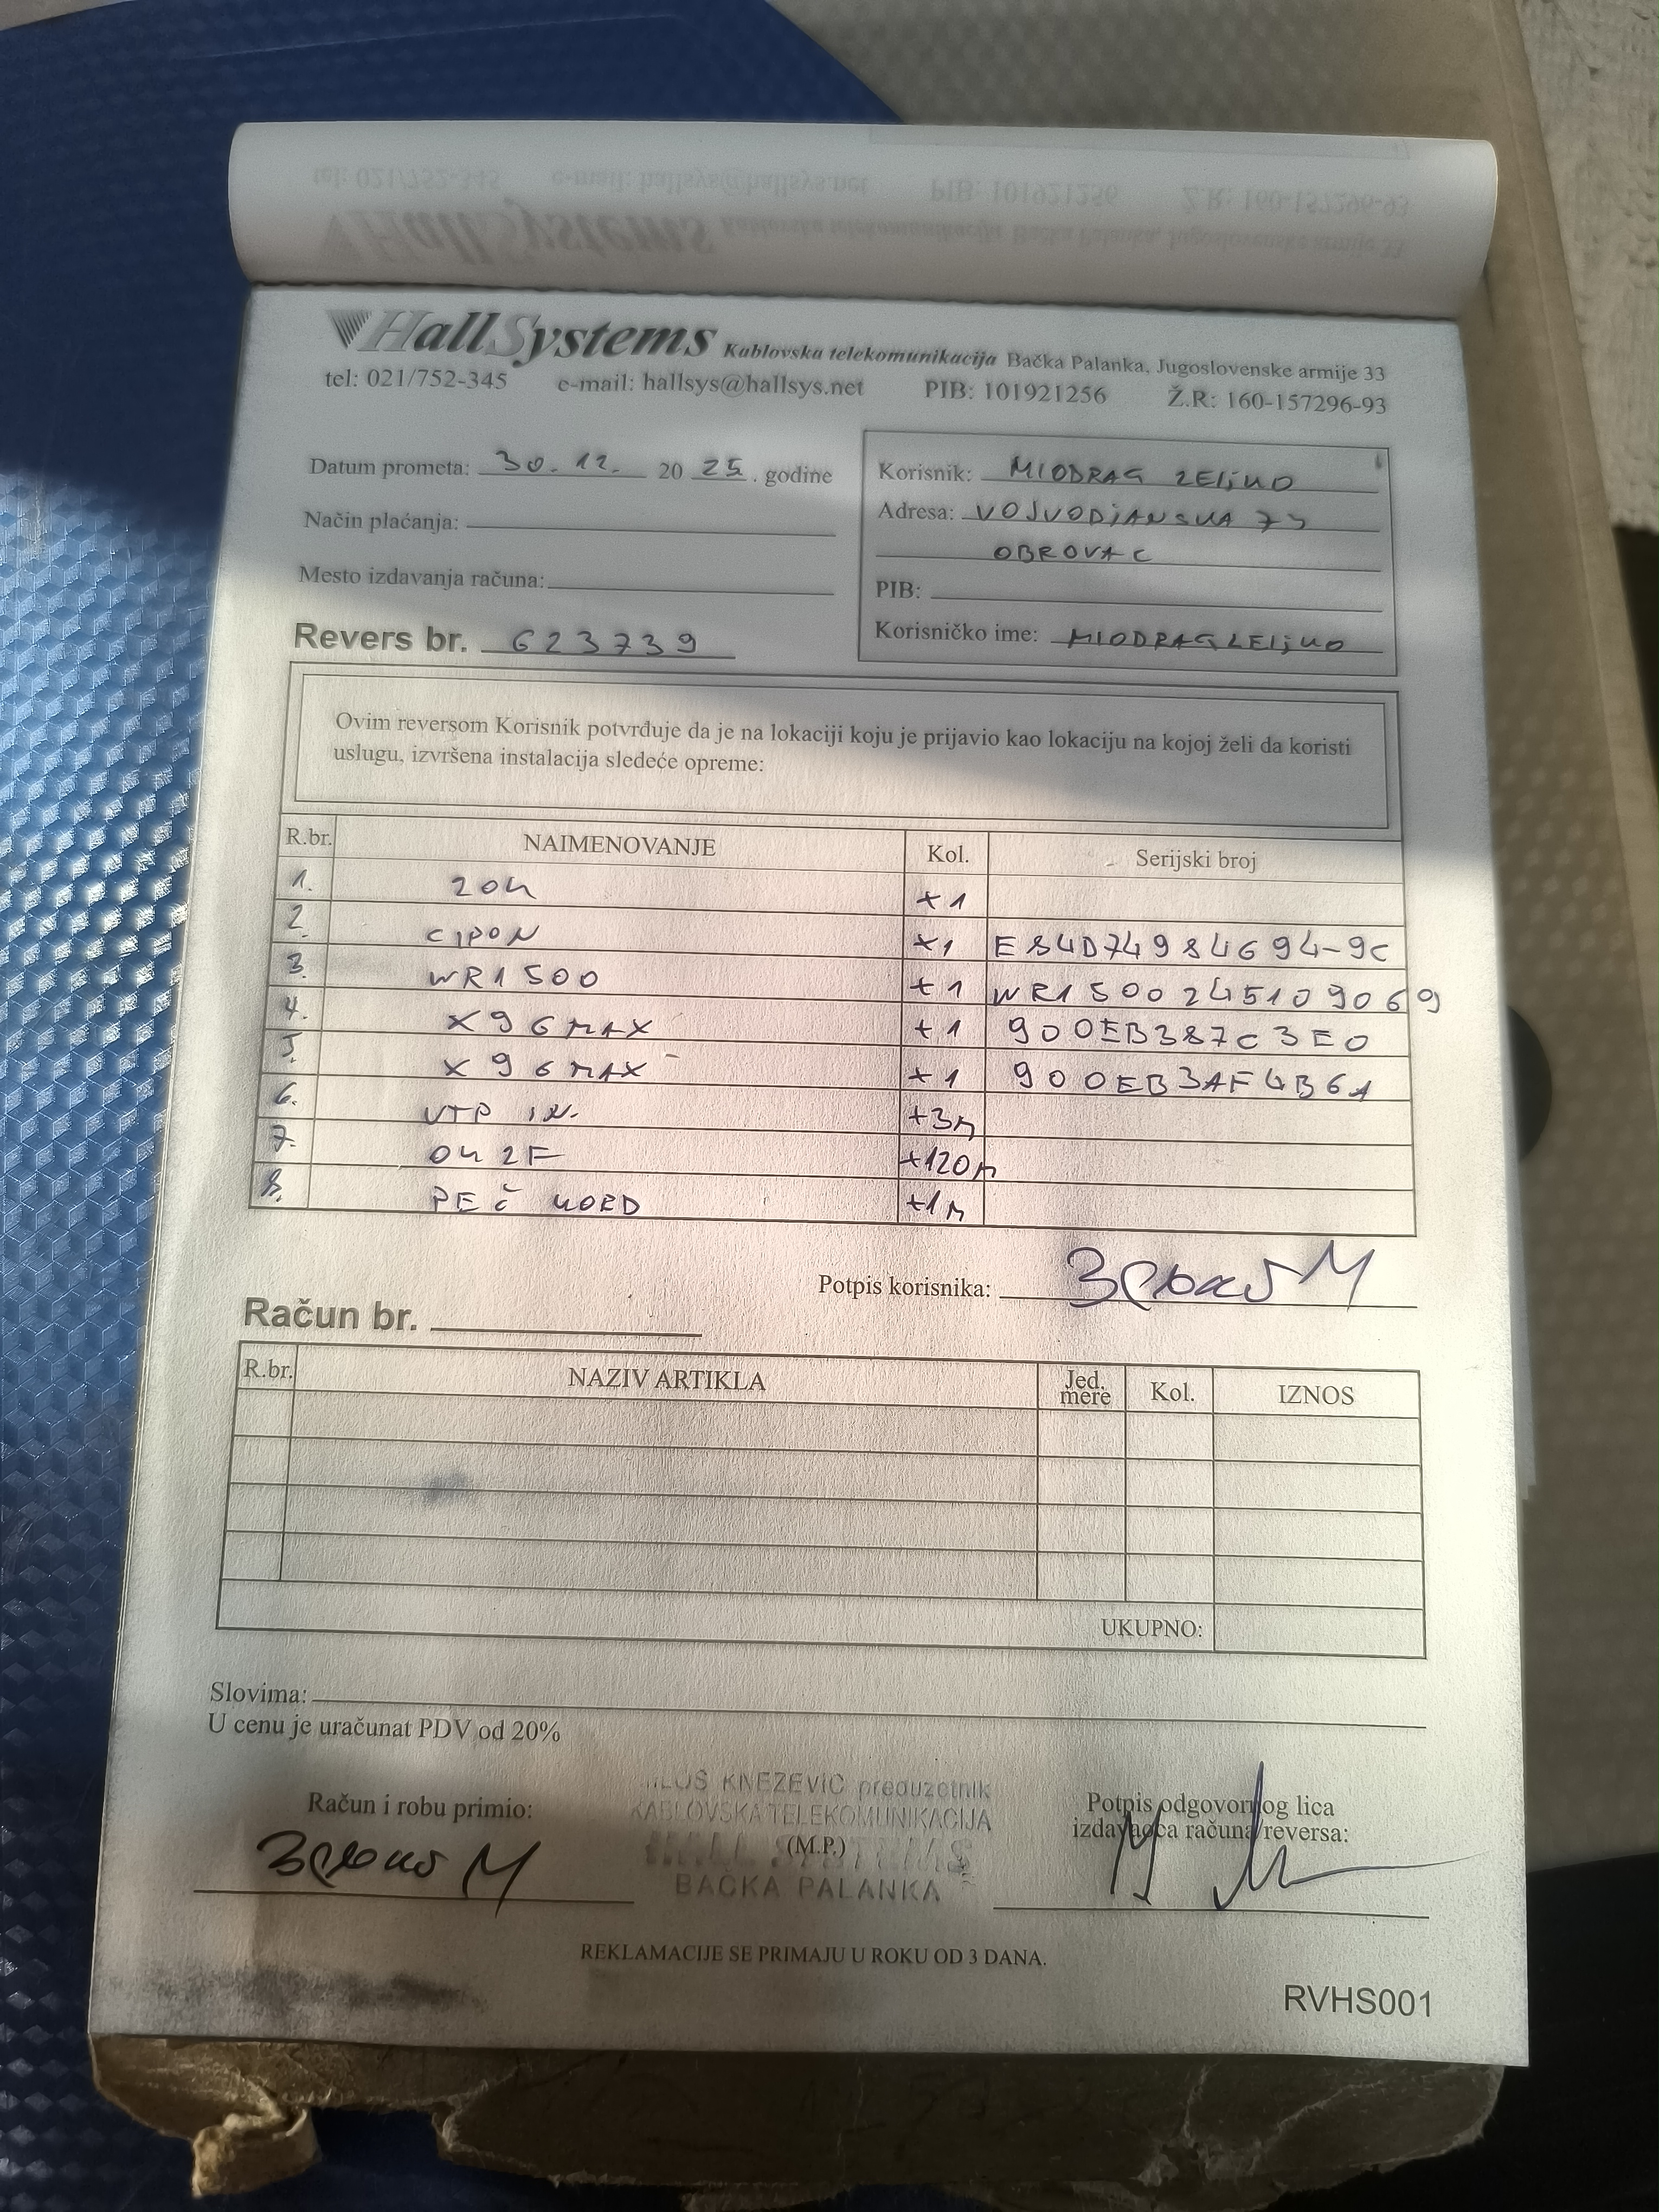 HallSystems Kablovska telekomunikacija Bačka Palanka, Jugoslovenske armije 33
tel: 021/752-345 e-mail: hallsys@hallsys.net PIB: 101921256 Ž.R: 160-157296-93
Datum prometa: 30.12. 20 25. godine
Način plaćanja:
Mesto izdavanja računa:
Revers br. 623739
Korisnik: MIODRAG ZELjKO
Adresa: VOJVODjANSKA
OBROVAC
PIB:
Korisničko ime: MIODRAGZELjKO
Ovim reversom Korisnik potvrđuje da je na lokaciji koju je prijavio kao lokaciju na kojoj želi da koristi
uslugu, izvršena instalacija sledeće opreme:
R.br. NAIMENOVANJE Kol. Serijski broj
1. ZOK +1
2. CIPON +1 E84D74984694-9C
3. WR1500 +1 WR1500245109069
4. X96MAX +1 900EB387C3E0
5. X96MAX +1 900EB3AF4B61
6. UTP IN. +3m
7. OK 2F +120m
8. PEČ KORD +1m
Potpis korisnika:
Račun br.
R.br. NAZIV ARTIKLA Jed. mere Kol. IZNOS
UKUPNO:
Slovima:
U cenu je uračunat PDV od 20%
Računi robu primio:
KNEZEVIC preduzetnik
KABLOVSKA TELEKOMUNIKACIJA
(M.P.)
HALL SYSTEMS
BAČKA PALANKA
Potpis odgovornog lica
izdavaoca računa/reversa:
REKLAMACIJE SE PRIMAJU U ROKU OD 3 DANA.
RVHS001